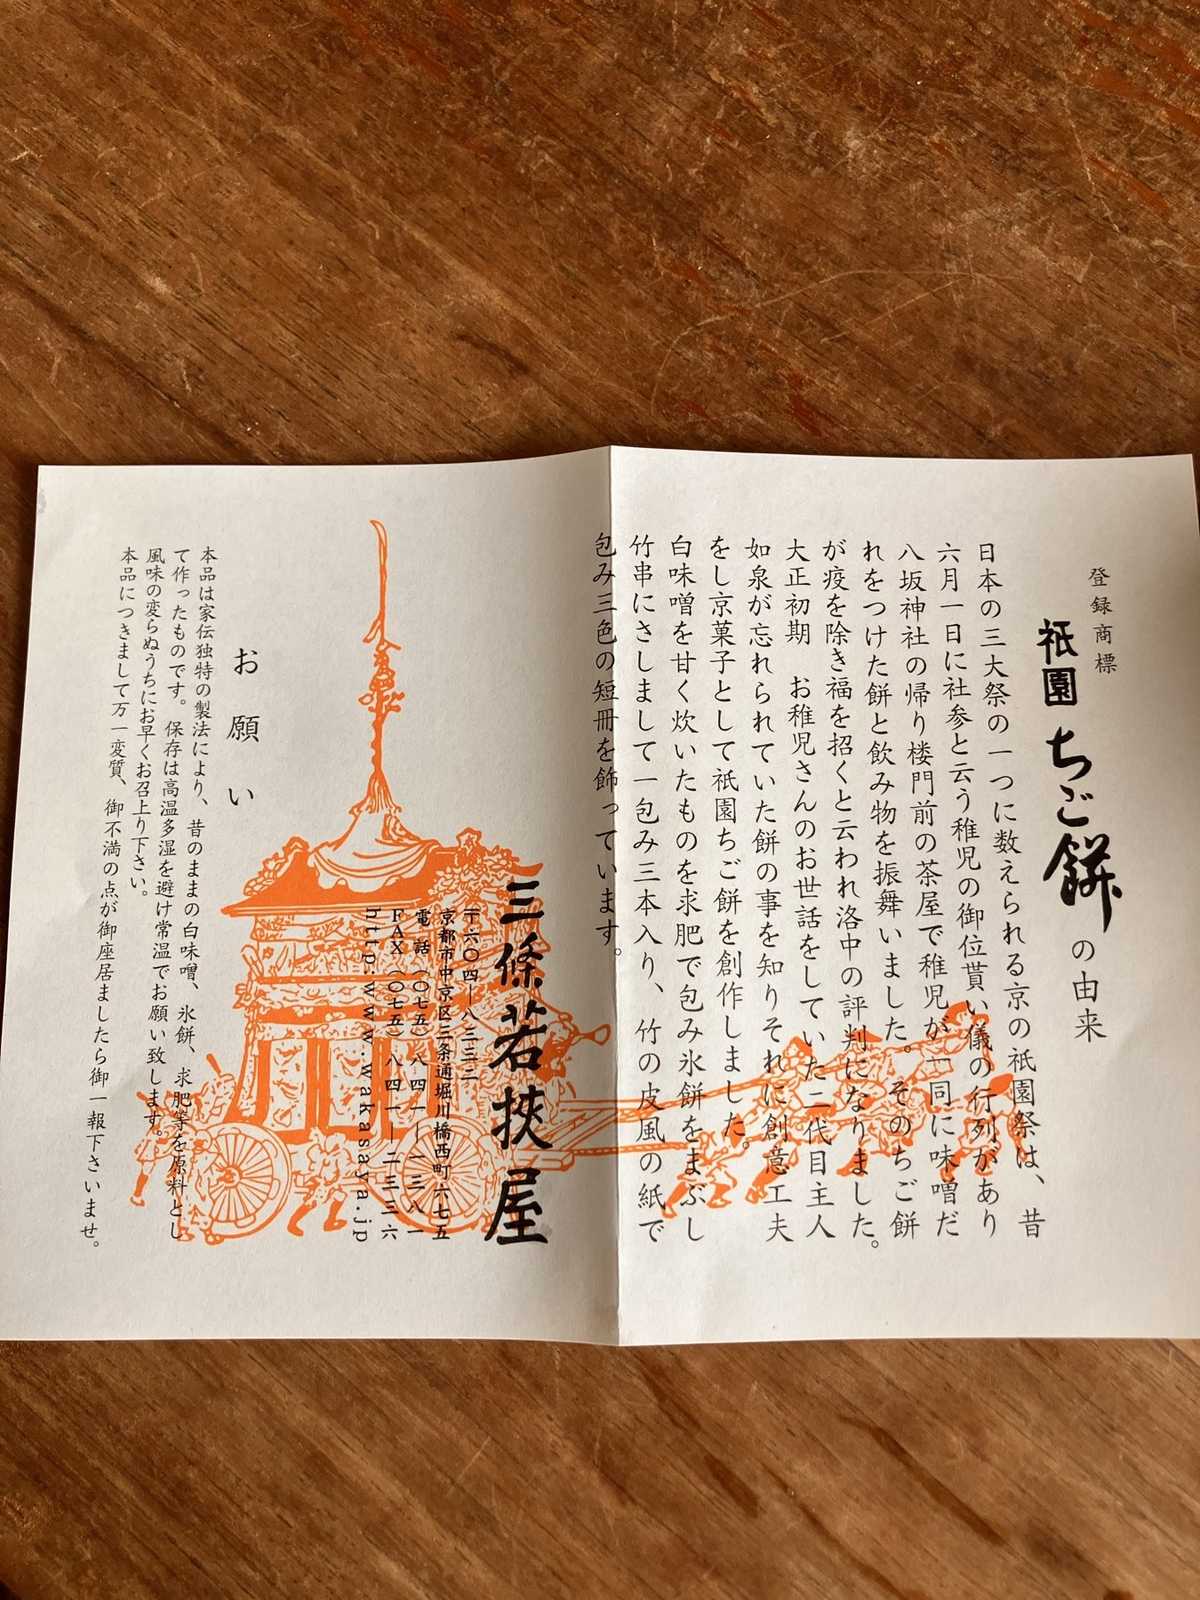 登録商標
祇園ちご餅の由来
日本の三大祭の一つに数えられる京の祇園祭は、昔
六月一日に社参と云う稚児の御位貰い儀の行列があり
八坂神社の帰り楼門前の茶屋で稚児が一同に味噌だ
れをつけた餅と飲み物を振舞いました。そのちご餅
が疫を除き福を招くと云われ洛中の評判になりました。
大正初期　お稚児さんのお世話をしていた二代目主人
如泉が忘れられていた餅の事を知りそれに創意工夫
をし京菓子として祇園ちご餅を創作しました。
白味噌を甘く炊いたものを求肥で包み氷餅をまぶし
竹串にさしまして一包み三本入り、竹の皮風の紙で
包み三色の短冊を飾っています。
三條若狹屋
〒六〇四―八三三二
京都市中京区三条通堀川橋西町六七五
電話（〇七五）八四一―一三八一
FAX（〇七五）八四一―二三三六
http:www.wakasaya.jp
お願い
本品は家伝独特の製法により、昔のままの白味噌、氷餅、求肥等を原料とし
て作ったものです。保存は高温多湿を避け常温でお願い致します。
風味の変らぬうちにお早くお召上り下さい。
本品につきまして万一変質、御不満の点が御座居ましたら御一報下さいませ。